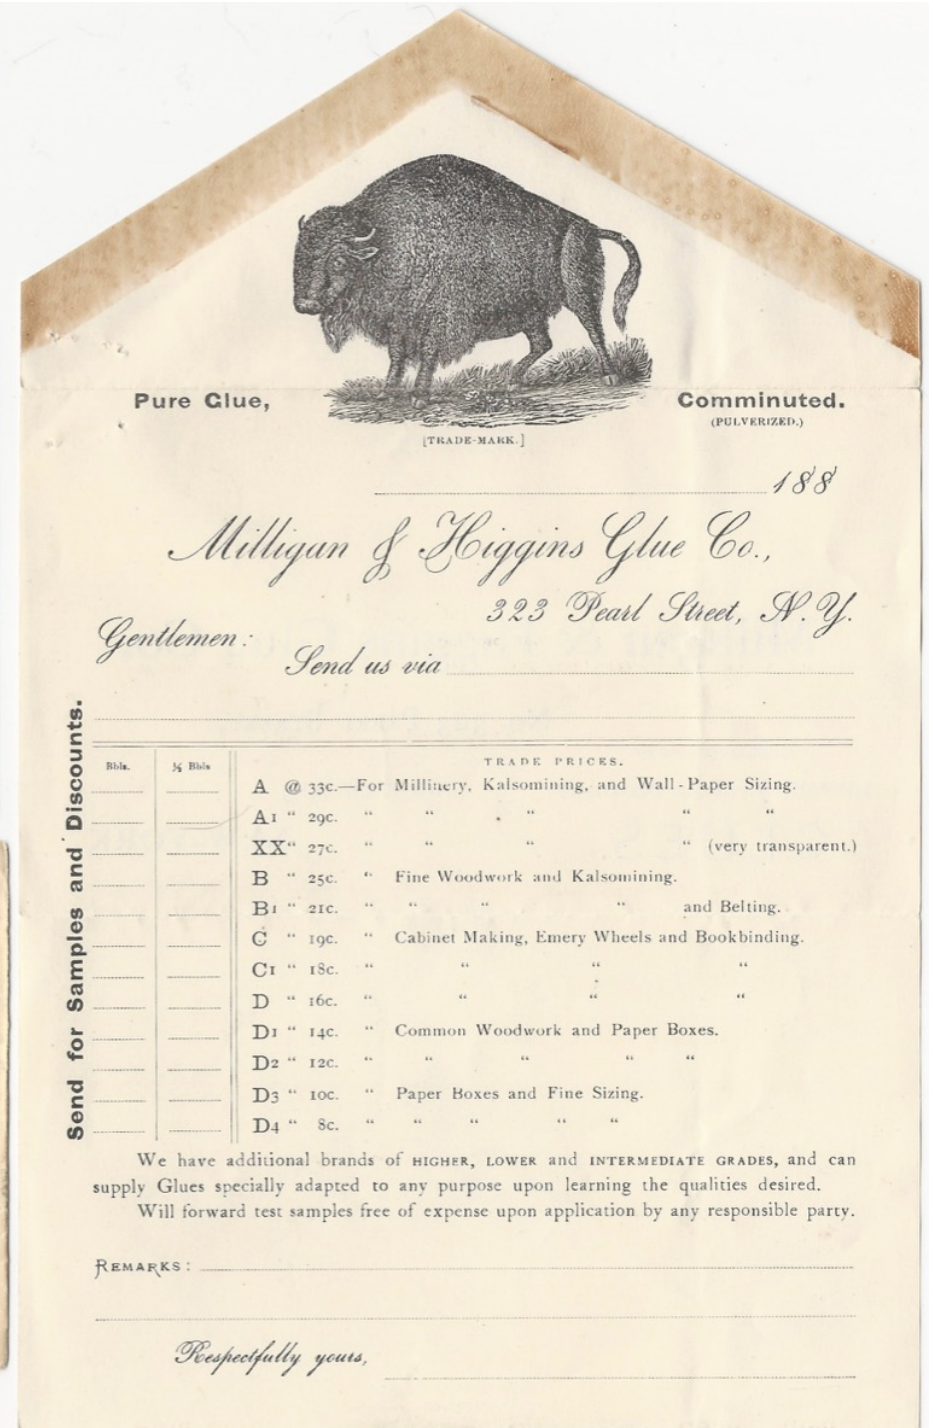 Pure Glue,
Comminuted.
(PULVERIZED.)
[TRADE-MARK.]
188
Milligan & Higgins Glue Co.,
323 Pearl Street, N. Y.
Gentlemen:
Send us via
Send for Samples and Discounts.
Bbls. ½ Bbls TRADE PRICES.
A @ 33c.—For Millinery, Kalsomining, and Wall-Paper Sizing.
A1 " 29c. " " " " "
XX " 27c. " " " " (very transparent.)
B " 25c. " Fine Woodwork and Kalsomining.
B1 " 21c. " " " " and Belting.
C " 19c. " Cabinet Making, Emery Wheels and Bookbinding.
C1 " 18c. " " " "
D " 16c. " " " "
D1 " 14c. " Common Woodwork and Paper Boxes.
D2 " 12c. " " " " "
D3 " 10c. " Paper Boxes and Fine Sizing.
D4 " 8c. " " " " "
We have additional brands of HIGHER, LOWER and INTERMEDIATE GRADES, and can
supply Glues specially adapted to any purpose upon learning the qualities desired.
Will forward test samples free of expense upon application by any responsible party.
REMARKS:
Respectfully yours,